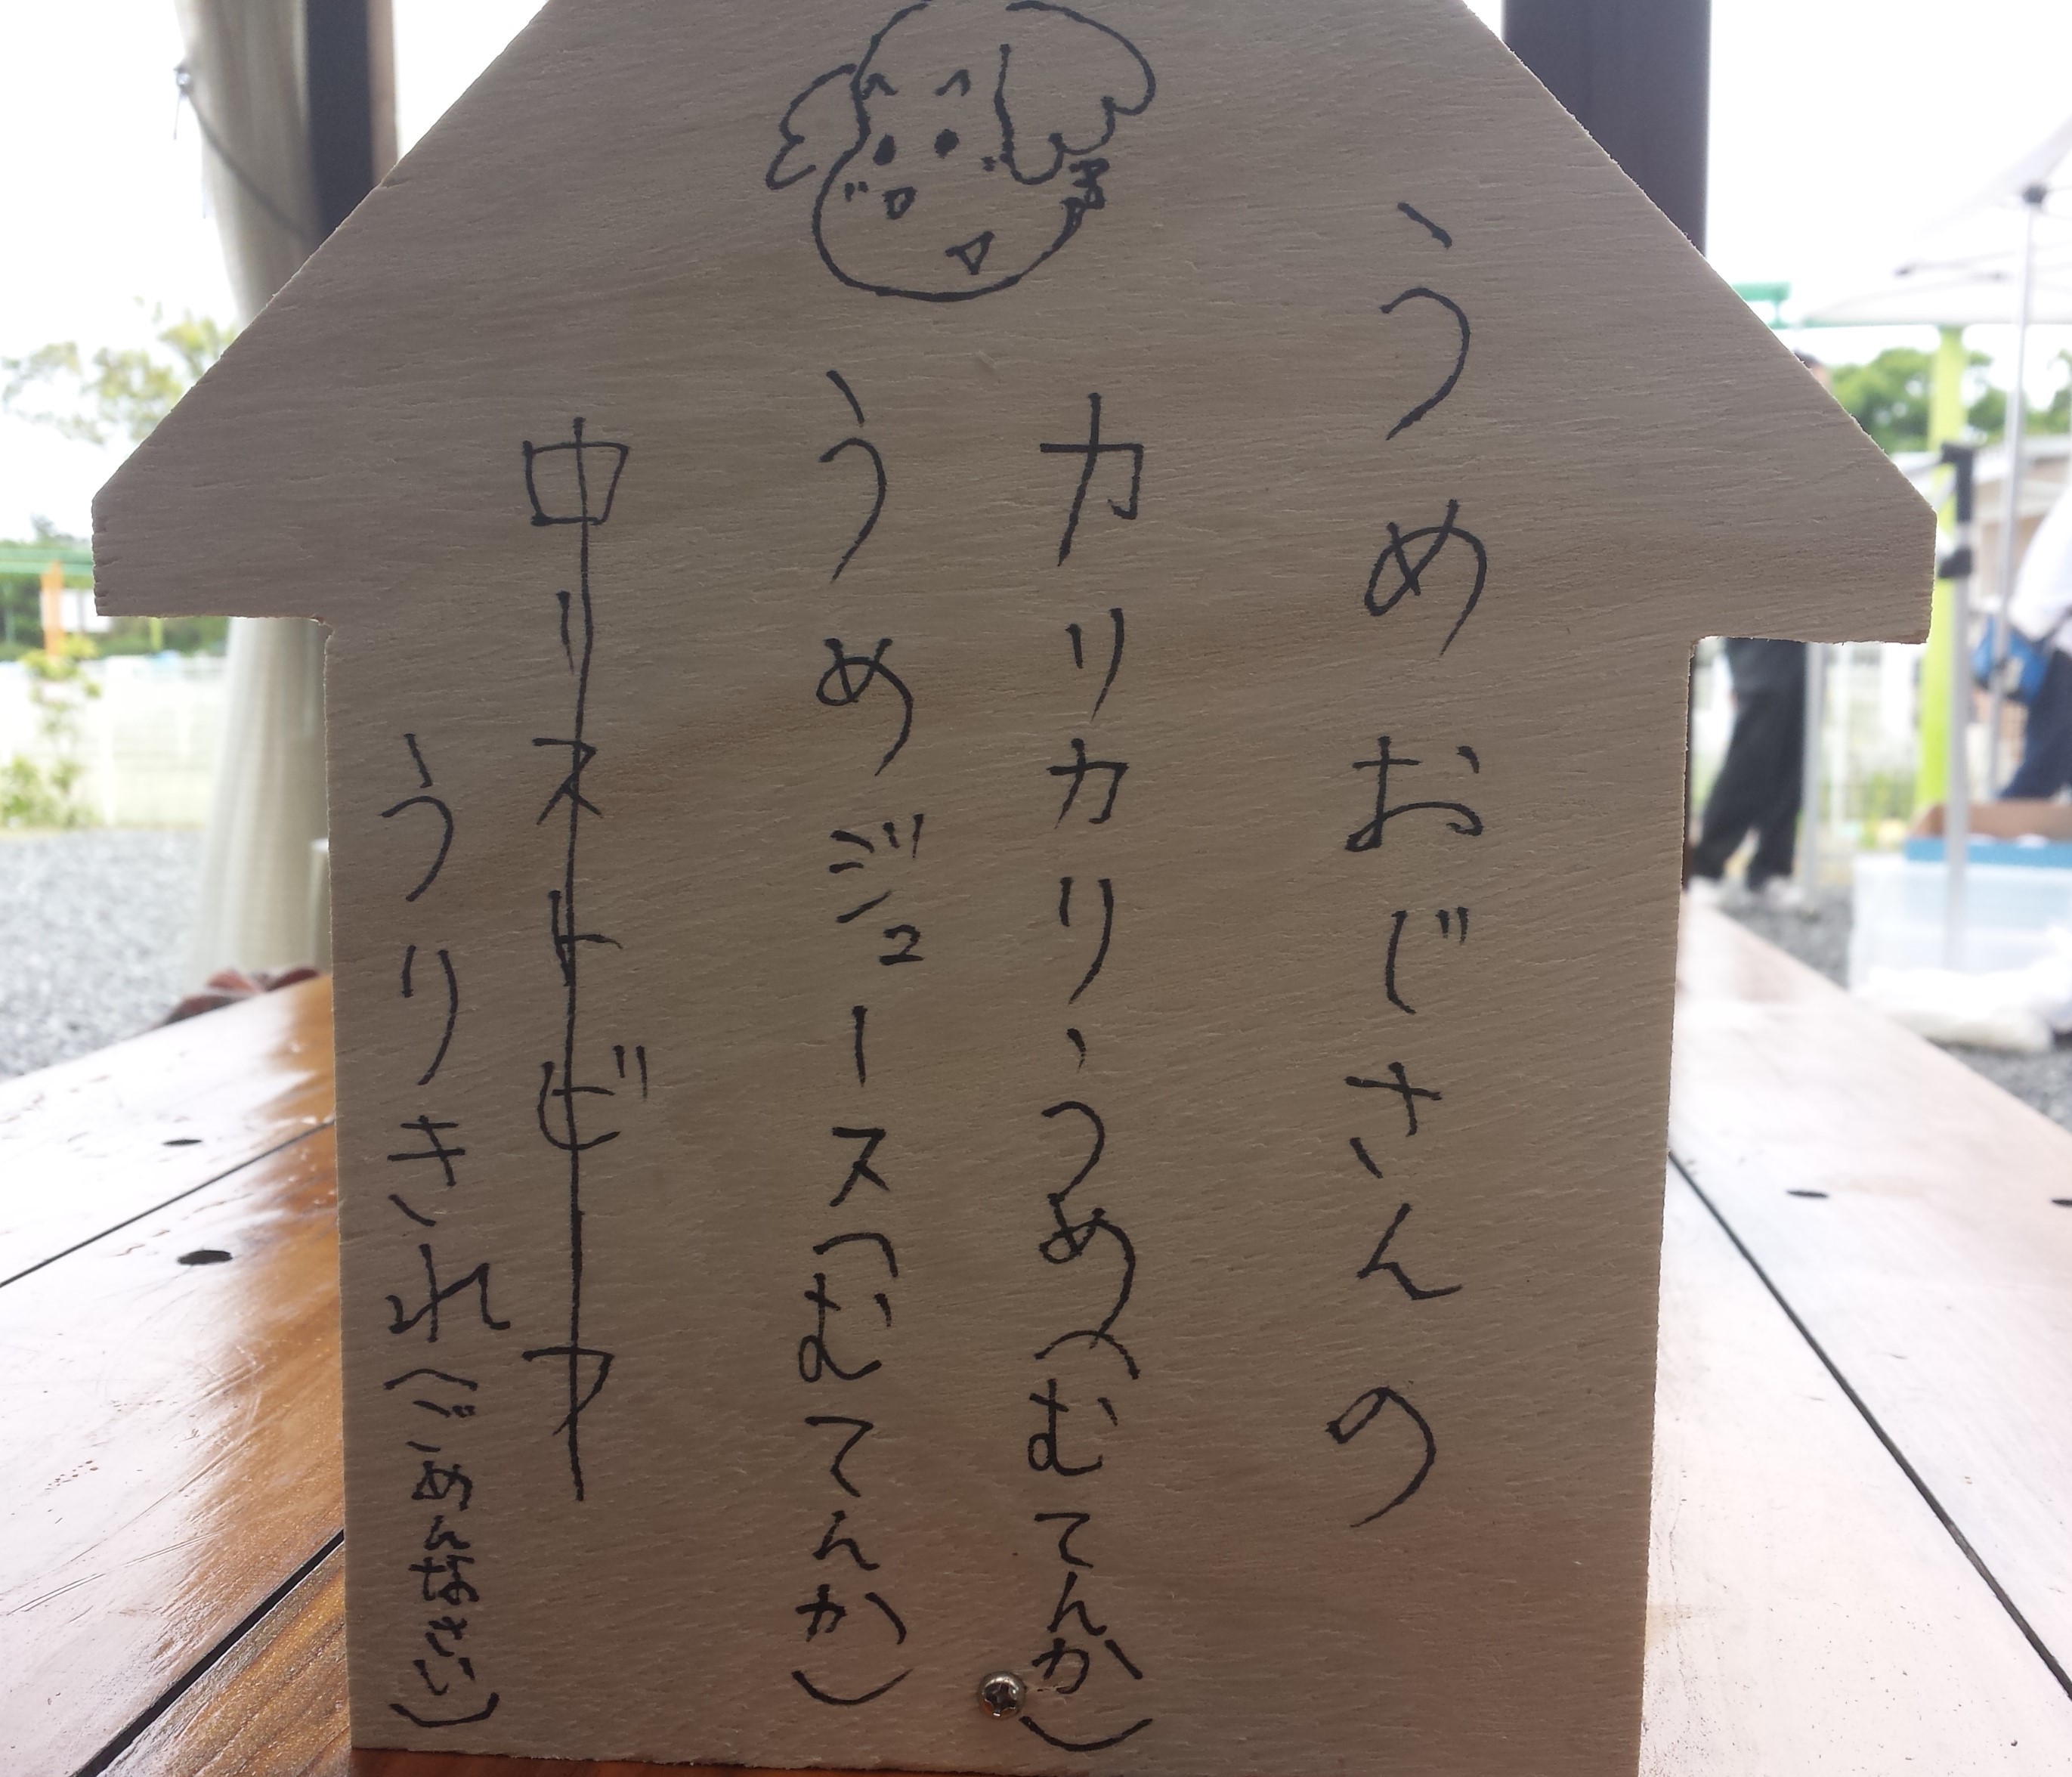 うめおじさんの
カリカリ、うめ(むてんか)
うめジュース(むてんか)
ローストビーフ
うりきれ(ごめんなさい)